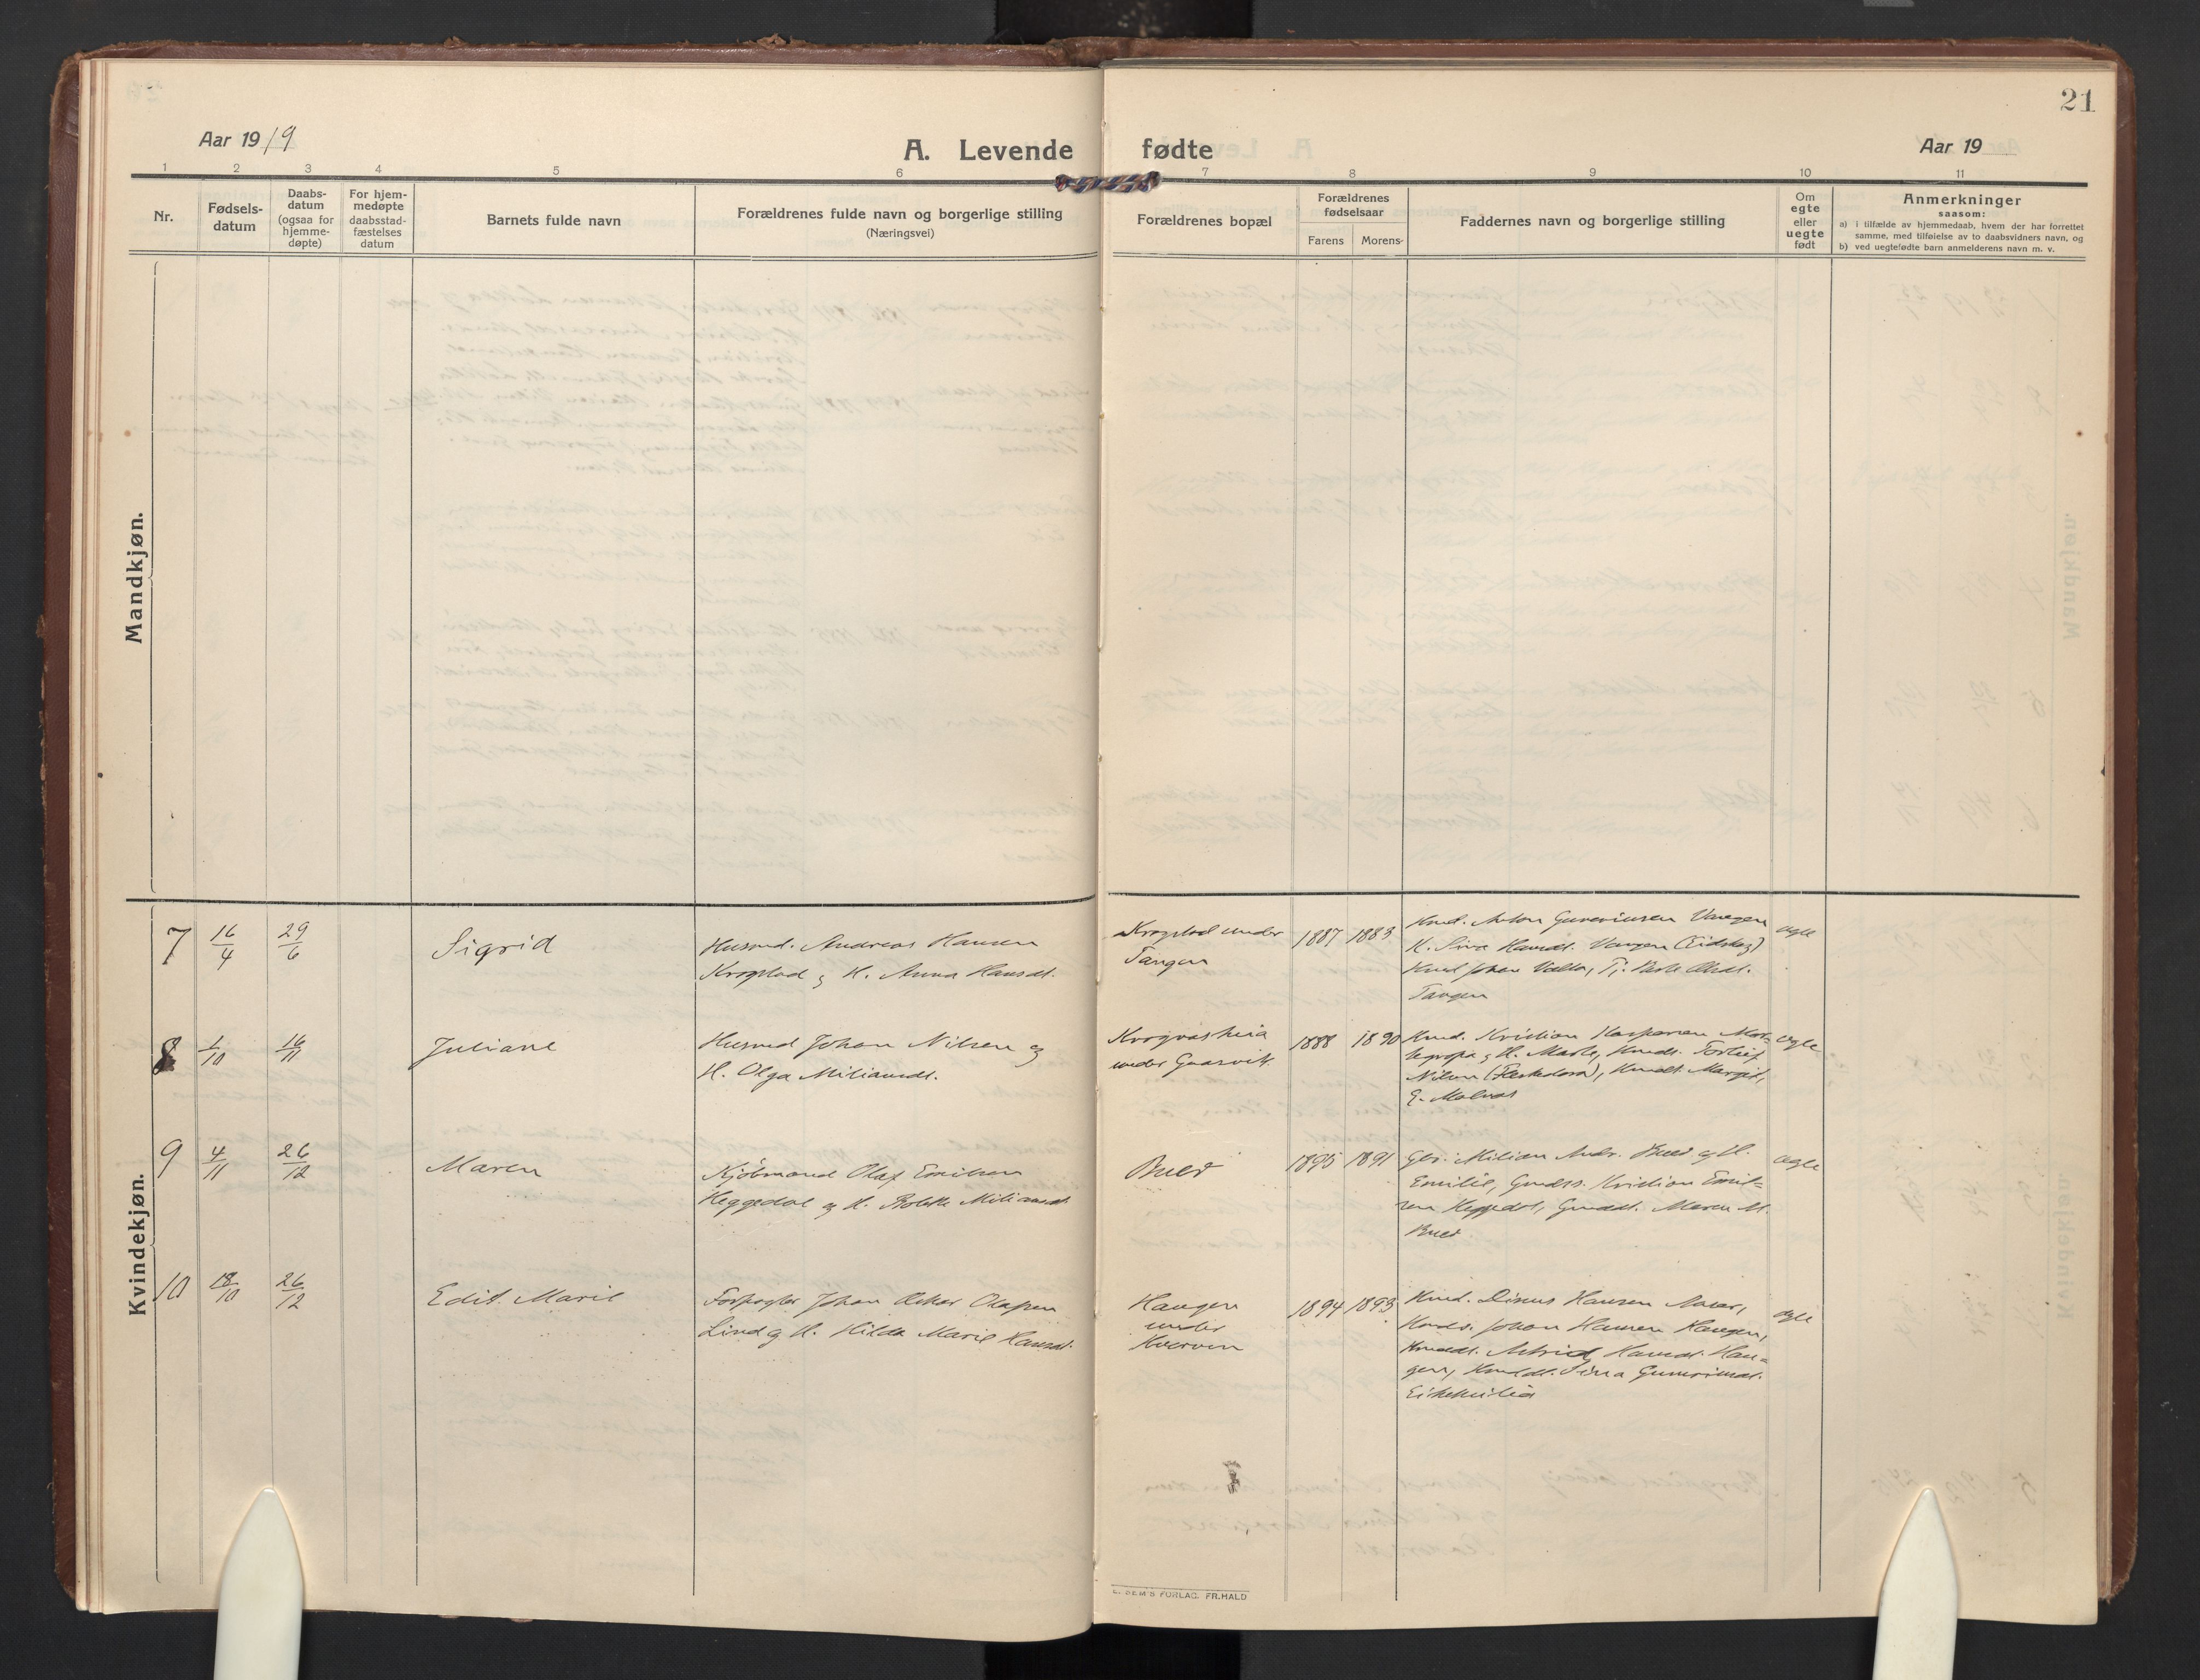 21
Aar 1919
A. Levende fødte
Aar 19
1 2 3 4 5 6 7 8 9 10 11
Nr.
Fødsels-
datum
Daabs-
datum
(ogsaa for
hjemme-
døpte)
For hjem-
medøpte
daabsstad-
fæstelses
datum
Barnets fulde navn
Forældrenes fulde navn og borgerlige stilling
(Næringsvei)
Forældrenes bopæl
Forældrenes
fødselsaar
Farens Morens
Faddernes navn og borgerlige stilling
Om
egte
eller
uegte
født
Anmerkninger
saasom:
a) i tilfælde av hjemmedaab, hvem der har forrettet
samme, med tilføielse av to daabsvidners navn, og
b) ved uegtefødte barn anmelderens navn m. v.
Mandkjøn.
Kvindekjøn.
7 16/4 29/6 Sigrid
Husmd. Andreas Hansen
Krogstad og H. Anna Hansdt.
Krogstad under
Tangen
1887 1883
Kmd. Anton Vangen
H. Hansdt. Vangen (Eidskog)
Johan
Tangen
egte
8 1/10 16/11 Juliane
Husmd Johan Nilsen og
H. Olga Miliamsdt.
under Gaasvik
1888 1890
Kmd. Kristian Kaspersen
H. Marte,
Nilsen Margit,
egte
9 4/11 26/12 Maren
Kjøbmand Olaf Emilsen
Heggedal og H. Bolette Miliamsdt.
Bued
1895 1891
Milian Andr. Bued og H.
Emilie, Gmds. Kristian Emil-
sen Heggedal, Gmdd. Maren M.
Bued
egte
10 18/10 26/12 Edit Marie
Forpagter Johan Oskar Olafsen
Lind og H. Hilda Marie Hansdt.
Haugen
under
Kverven
1894 1893
Hansen
Johan Hansen Haugen,
Astrid Hansdt. Hau-
gen,
egte
E. SEM'S FORLAG. FR.HALD